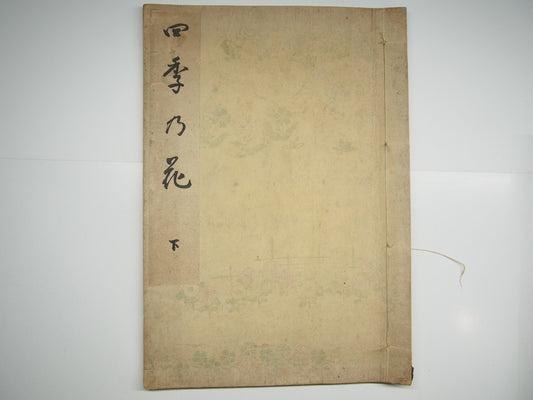 四季乃花
下